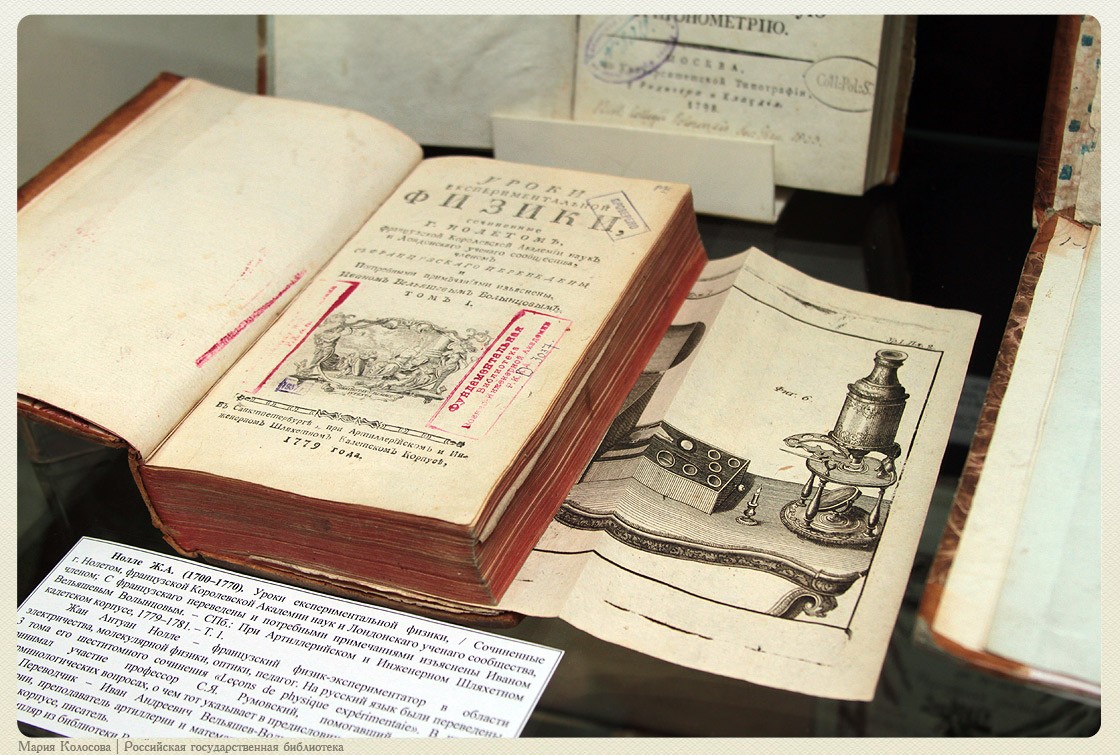 ТРИГОНОМЕТРІЮ.
МОСКВА,
Университетской Типографіи,
у Ридигера и Клаудія.
1798.
Coll:Pol:S.
УРОКИ
ЕКСПЕРИМЕНТАЛЬНОЙ
ФИЗИКИ,
СОЧИНЕННЫЕ
Г. НОЛЕТОМЪ,
Французской Королевской Академіи наукъ
и Лондонскаго ученаго сообщества,
членомъ
СЪ ФРАНЦУСКАГО ПЕРЕВЕДЕНЫ
и
Потребными примѣчаніями изъяснены,
Иваномъ Вельяшевымъ Волынцовымъ.
ТОМЪ I.
Фундаментальная
Библиотека
3047
Въ Санктпетербургѣ, при Артиллерійскомъ и Ин-
женерномъ Шляхетномъ Кадетскомъ Корпусѣ,
1779 года.
Фиг. 6.
Нолле Ж.А. (1700–1770). Уроки експериментальной физики, / Сочиненные
г. Нолетом, французской Королевской Академии наук и Лондонскаго ученаго сообщества,
членом; С французскаго переведены и потребными примечаниями изъяснены Иваном
Вельяшевым Волынцовым. – СПб.: При Артиллерийском и Инженерном Шляхетном
кадетском корпусе, 1779–1781. – Т. 1.
Жан Антуан Нолле – французский физик-экспериментатор в области
электричества, молекулярной физики, оптики, педагог. На русский язык были переведены
3 тома его шеститомного сочинения «Leçons de physique expérimentale». В
участие профессор С.Я. Румовский, помогавший
вопросах, о чем тот указывает в предисловии
Переводчик – Иван Андреевич Вельяшев-
преподаватель артиллерии и
корпусе, писатель.
из библиотеки
Мария Колосова | Российская государственная библиотека